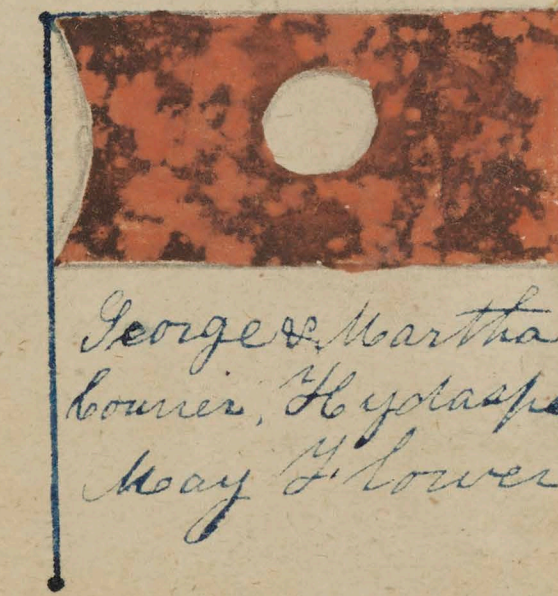 George & Martha
Courier, Hydaspe
May Flower